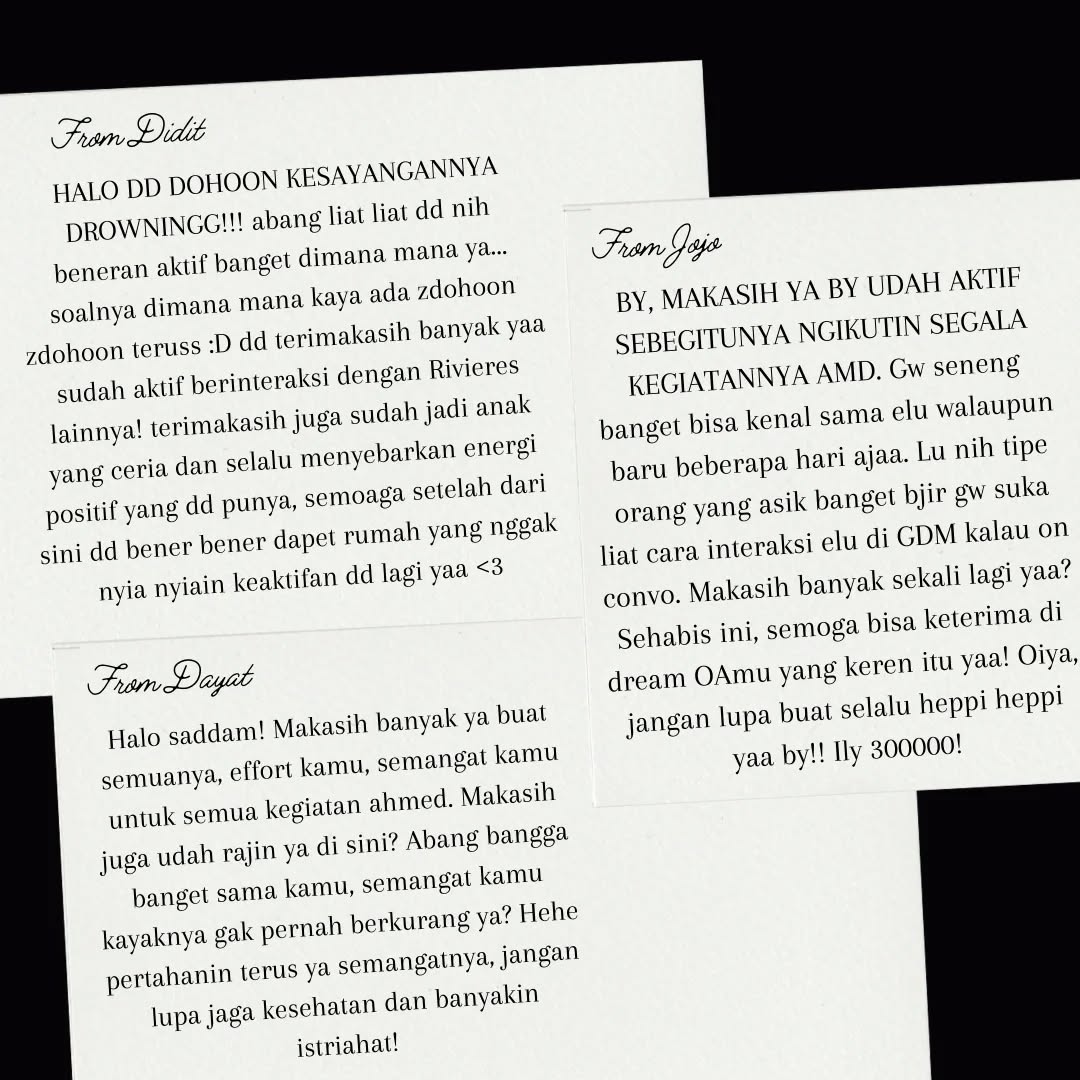 From Didit
HALO DD DOHOON KESAYANGANNYA
DROWNINGG!!! abang liat liat dd nih
beneran aktif banget dimana mana ya...
soalnya dimana mana kaya ada zdohoon
zdohoon teruss :D dd terimakasih banyak yaa
sudah aktif berinteraksi dengan Rivieres
lainnya! terimakasih juga sudah jadi anak
yang ceria dan selalu menyebarkan energi
positif yang dd punya, semoaga setelah dari
sini dd bener bener dapet rumah yang nggak
nyia nyiain keaktifan dd lagi yaa <3
From Jojo
BY, MAKASIH YA BY UDAH AKTIF
SEBEGITUNYA NGIKUTIN SEGALA
KEGIATANNYA AMD. Gw seneng
banget bisa kenal sama elu walaupun
baru beberapa hari ajaa. Lu nih tipe
orang yang asik banget bjir gw suka
liat cara interaksi elu di GDM kalau on
convo. Makasih banyak sekali lagi yaa?
Sehabis ini, semoga bisa keterima di
dream OAmu yang keren itu yaa! Oiya,
jangan lupa buat selalu heppi heppi
yaa by!! Ily 300000!
From Dayat
Halo saddam! Makasih banyak ya buat
semuanya, effort kamu, semangat kamu
untuk semua kegiatan ahmed. Makasih
juga udah rajin ya di sini? Abang bangga
banget sama kamu, semangat kamu
kayaknya gak pernah berkurang ya? Hehe
pertahanin terus ya semangatnya, jangan
lupa jaga kesehatan dan banyakin
istriahat!